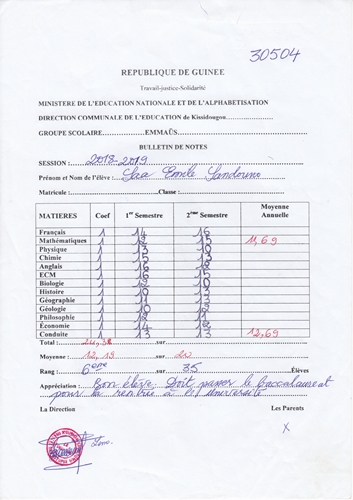 30504
REPUBLIQUE DE GUINEE
Travail-justice-Solidarité
MINISTERE DE L'EDUCATION NATIONALE ET DE L'ALPHABETISATION
DIRECTION COMMUNALE DE L'EDUCATION de Kissidougou
GROUPE SCOLAIRE EMMAÜS
BULLETIN DE NOTES
SESSION : 2018-2019
Prénom et Nom de l'élève : Saa Emile Sandouno
Matricule : Classe :
MATIERES Coef 1er Semestre 2ème Semestre Moyenne Annuelle
Français 1 14 16
Mathématiques 1 12 15 11,69
Physique 1 13 10
Chimie 1 15 13
Anglais 1 16
ECM 1 16 15
Biologie 1 12 10
Histoire 1 10 13
Géographie 1 11 13
Géologie 1 10 12
Philosophie 1 12 11
Économie 1 14
Conduite 1 13 13 12,69
Total : sur
Moyenne : 12,19 sur 20
Rang : 6ème sur 35 Élèves
Appréciation : Bon élève. Doit passer le baccalaureat
pour la
La Direction Les Parents
X